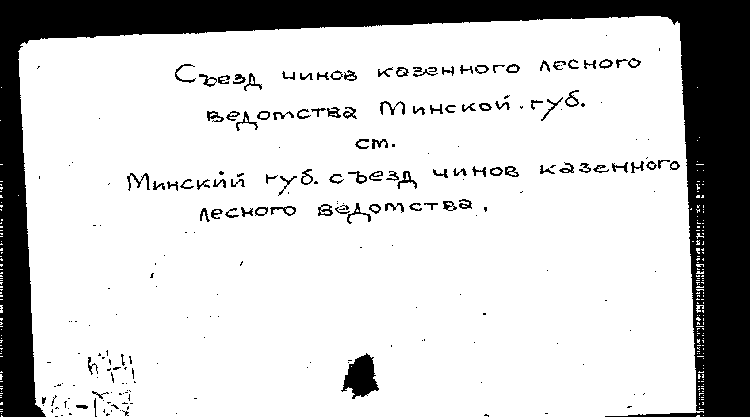 Съезд чинов казенного лесного
ведомства Минской губ.
см.
Минский губ. съезд чинов казенного
лесного ведомства.